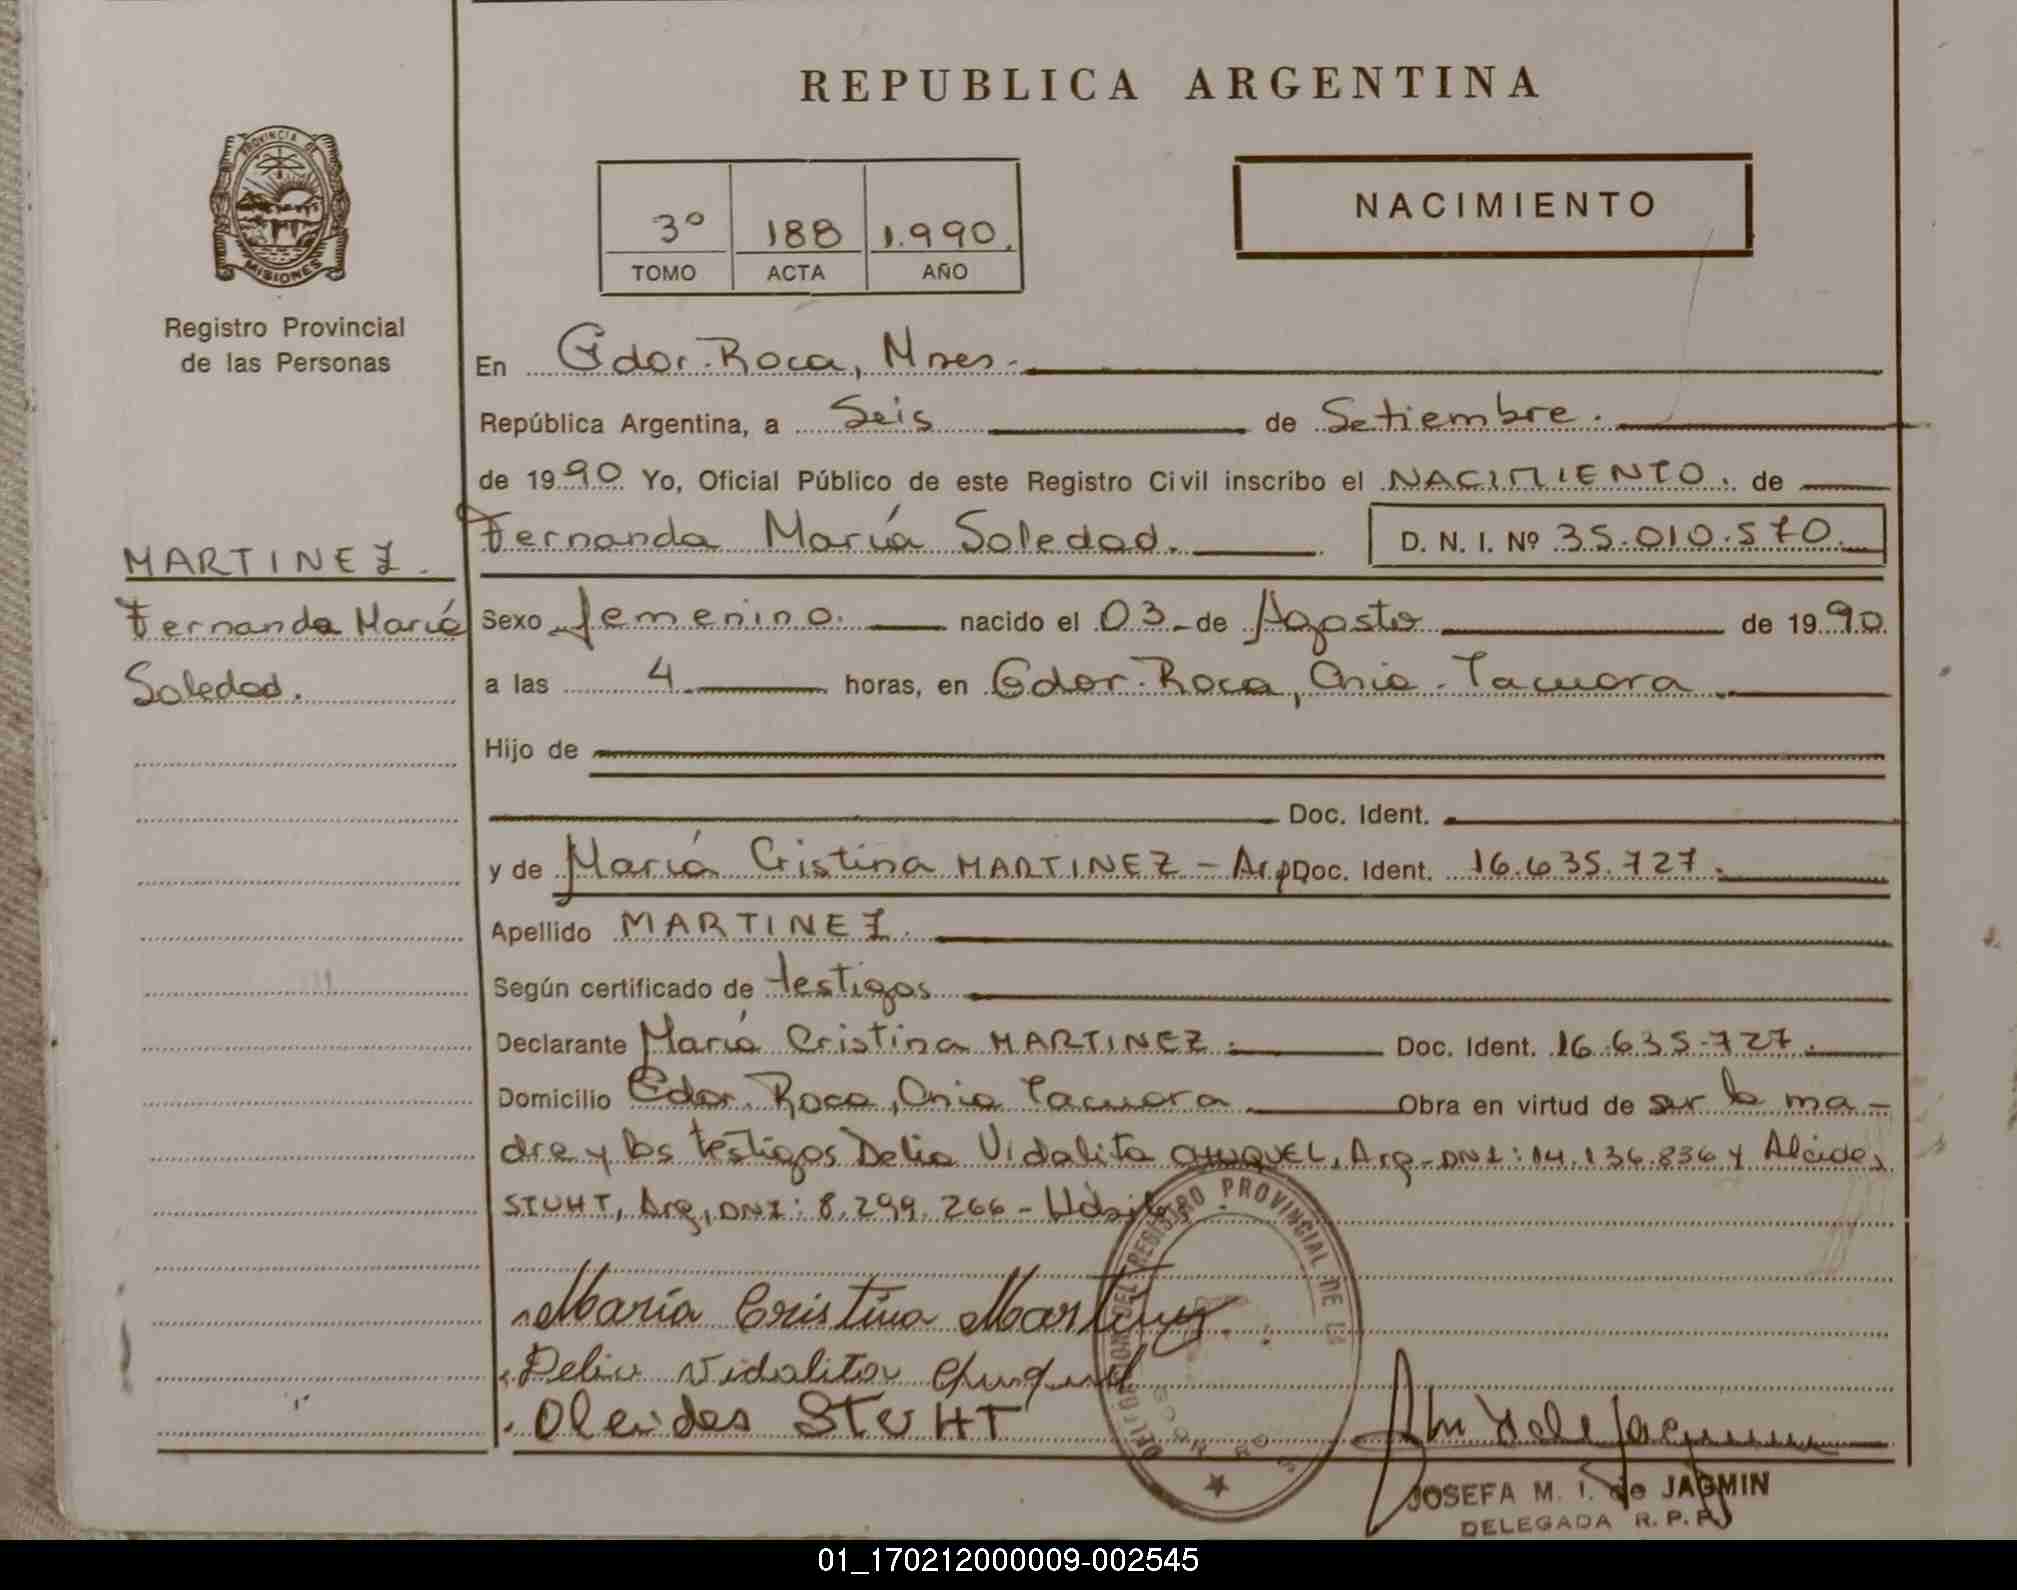 REPUBLICA ARGENTINA
PROVINCIA DE
MISIONES
Registro Provincial
de las Personas
3º 188 1.990.
TOMO ACTA AÑO
NACIMIENTO
En Gdor. Roca, Mnes.
República Argentina, a Seis de Setiembre.
de 1990 Yo, Oficial Público de este Registro Civil inscribo el NACIMIENTO. de
Fernanda María Soledad. D. N. I. Nº 35.010.570.
MARTINEZ.
Fernanda María
Soledad.
Sexo femenino. nacido el 03 de Agosto de 1990.
a las 4 horas, en Gdor. Roca, Cnia. Tacuara
Hijo de
Doc. Ident.
y de María Cristina MARTINEZ - Arg Doc. Ident. 16.635.727.
Apellido MARTINEZ.
Según certificado de testigos
Declarante María Cristina MARTINEZ. Doc. Ident. 16.635.727.
Domicilio Gdor. Roca, Cnia Tacuara Obra en virtud de ser la ma-
dre y los testigos Delia Vidalita CHUQUEL, Arg. DNI: 14.136.836 y Alcides
STUHT, Arg, DNI: 8.299.266 -
María Cristina Martinez
Delia Vidalita Chuquel
Olcides STUHT
REGISTRO PROVINCIAL DE
JOSEFA M. I. de JAGMIN
DELEGADA R. P. P.
01_170212000009-002545